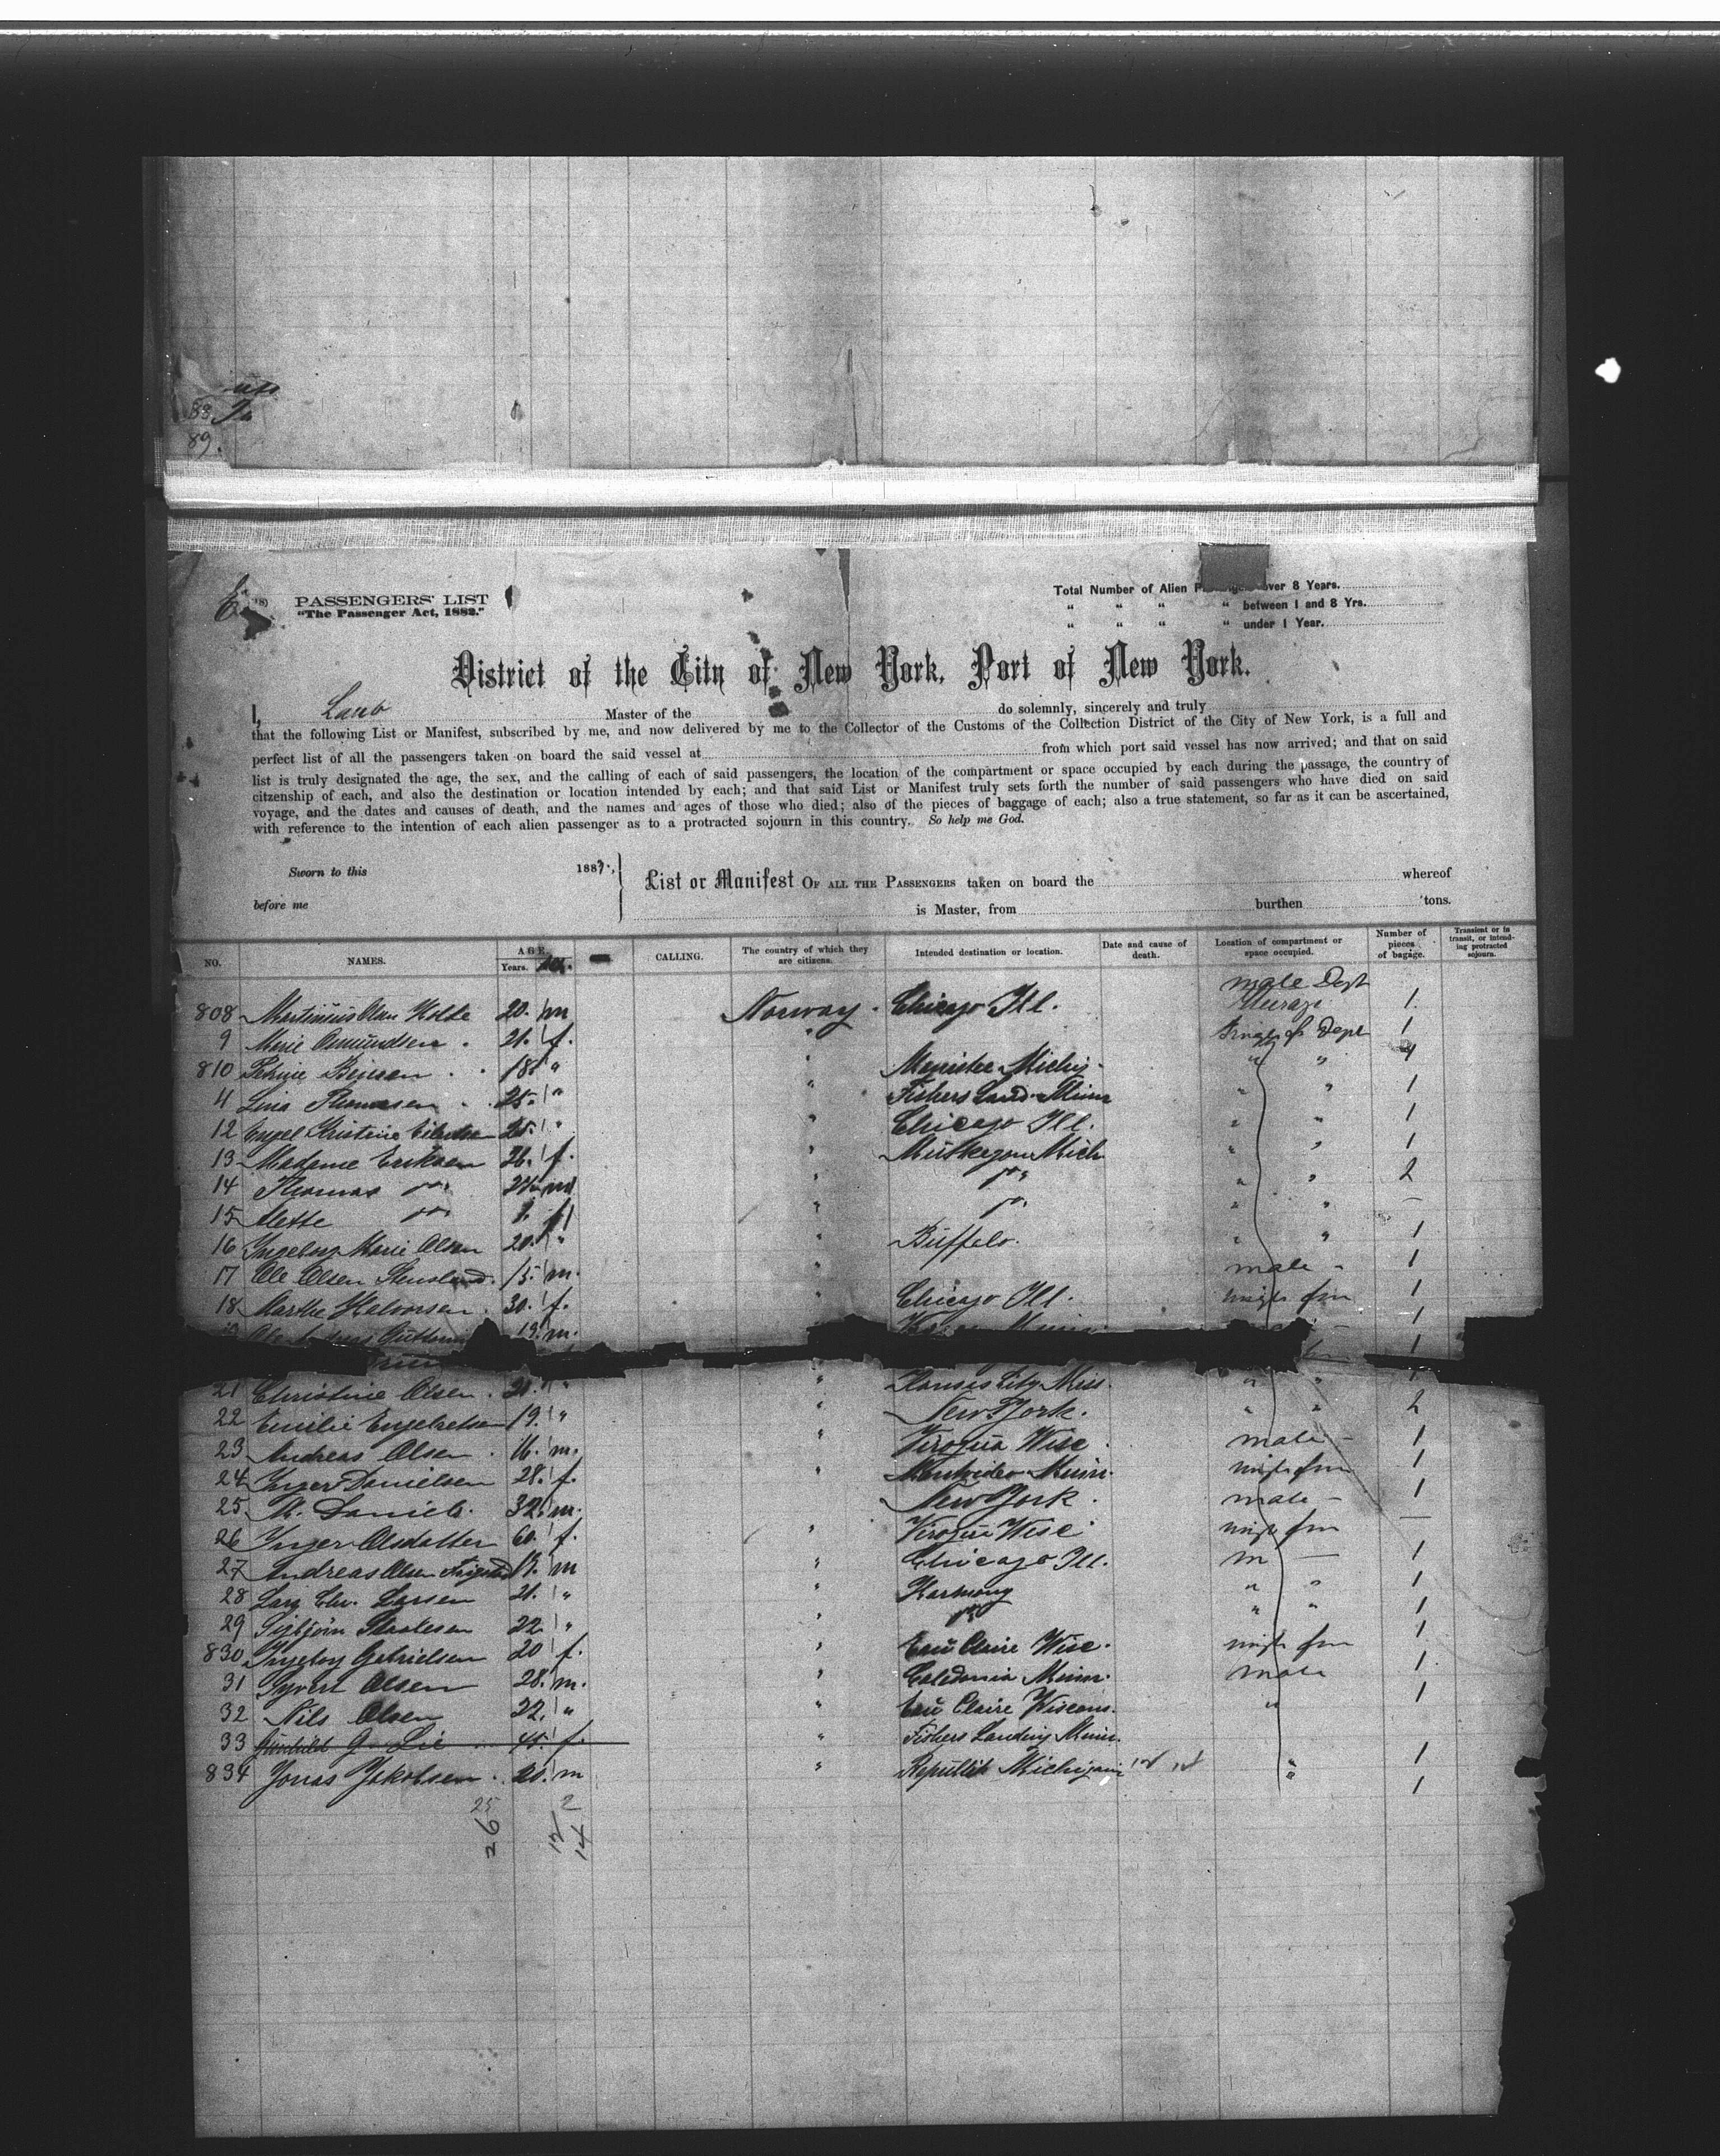 89.
PASSENGERS' LIST
"The Passenger Act, 1882."
Total Number of Alien Passengers over 8 Years.
" " " " between 1 and 8 Yrs.
" " " " under 1 Year.
District of the City of New York, Port of New York.
I, Laub Master of the do solemnly, sincerely and truly
that the following List or Manifest, subscribed by me, and now delivered by me to the Collector of the Customs of the Collection District of the City of New York, is a full and
perfect list of all the passengers taken on board the said vessel at from which port said vessel has now arrived; and that on said
list is truly designated the age, the sex, and the calling of each of said passengers, the location of the compartment or space occupied by each during the passage, the country of
citzenship of each, and also the destination or location intended by each; and that said List or Manifest truly sets forth the number of said passengers who have died on said
voyage, and the dates and causes of death, and the names and ages of those who died; also of the pieces of baggage of each; also a true statement, so far as it can be ascertained,
with reference to the intention of each alien passenger as to a protracted sojourn in this country. So help me God.
Sworn to this 188
before me
List or Manifest OF ALL THE PASSENGERS taken on board the whereof
is Master, from burthen tons.
NO. NAMES. AGE. Years. CALLING. The country of which they are citizens. Intended destination or location. Date and cause of death. Location of compartment or space occupied. Number of pieces of bagage. Transient or in transit, or intending protracted sojourn.
male Dept
808 Martinius Olau 20. m Norway. Chicago Ill. 1.
9 Marie Asmundsen. 21. f. " Dept 1
810 18. " " Manistee Michig. " " 4
11 Lina Thomasen 25. " " Fishers Land. Minn " " 1
12 Engel Kristine 25. " " Chicago Ill. " " 1
13 Madame Eriksen 26. f. " Muskegon Mich " " 1
14 Thomas do. m " do. " " 2
15 Mette do. f " do. " " —
16 Ingeborg Marie Olsen 20. " " Buffalo. " " 1
17 Ole Olsen Stensland. 15. m. " male - 1
18 Marthe Halvorsen. 30. f. " Chicago Ill. 1
19. m. 1
1
21 Christine Olsen. " " Kansas City Miss. " " 1
22 Emilie Engebretsen 19. " " New York. " " 2
23 Andreas Olsen. 16. m. " Viroqua Wisc. male - 1
24 Inger Danielsen 28. f. " Montevideo Minn. 1
25 Daniels. 32. m. New York. male - 1
26 Inger Olsdatter 60. f. " Viroqua Wisc. —
27 Andreas Olsen 19. m " Chicago Ill. m — 1
28 Lars Chr. Larsen 21. " " Harmony " " 1
29 22. " " do. " " 1
830 Ingeborg Gabrielsen 20 f. " Eau Claire Wisc. 1
31 Syvert Olsen 28. m. " Caledonia Minn. male 1
32 Nils Olsen 22. " " Eau Claire Wiscons. " 1
33 Gunhild G. Lie 45. f. " Fishers Landing Minn.
834 Jonas Jakobsen. 20. m " Republic Michigan " 1
1
25 2
26 12 14